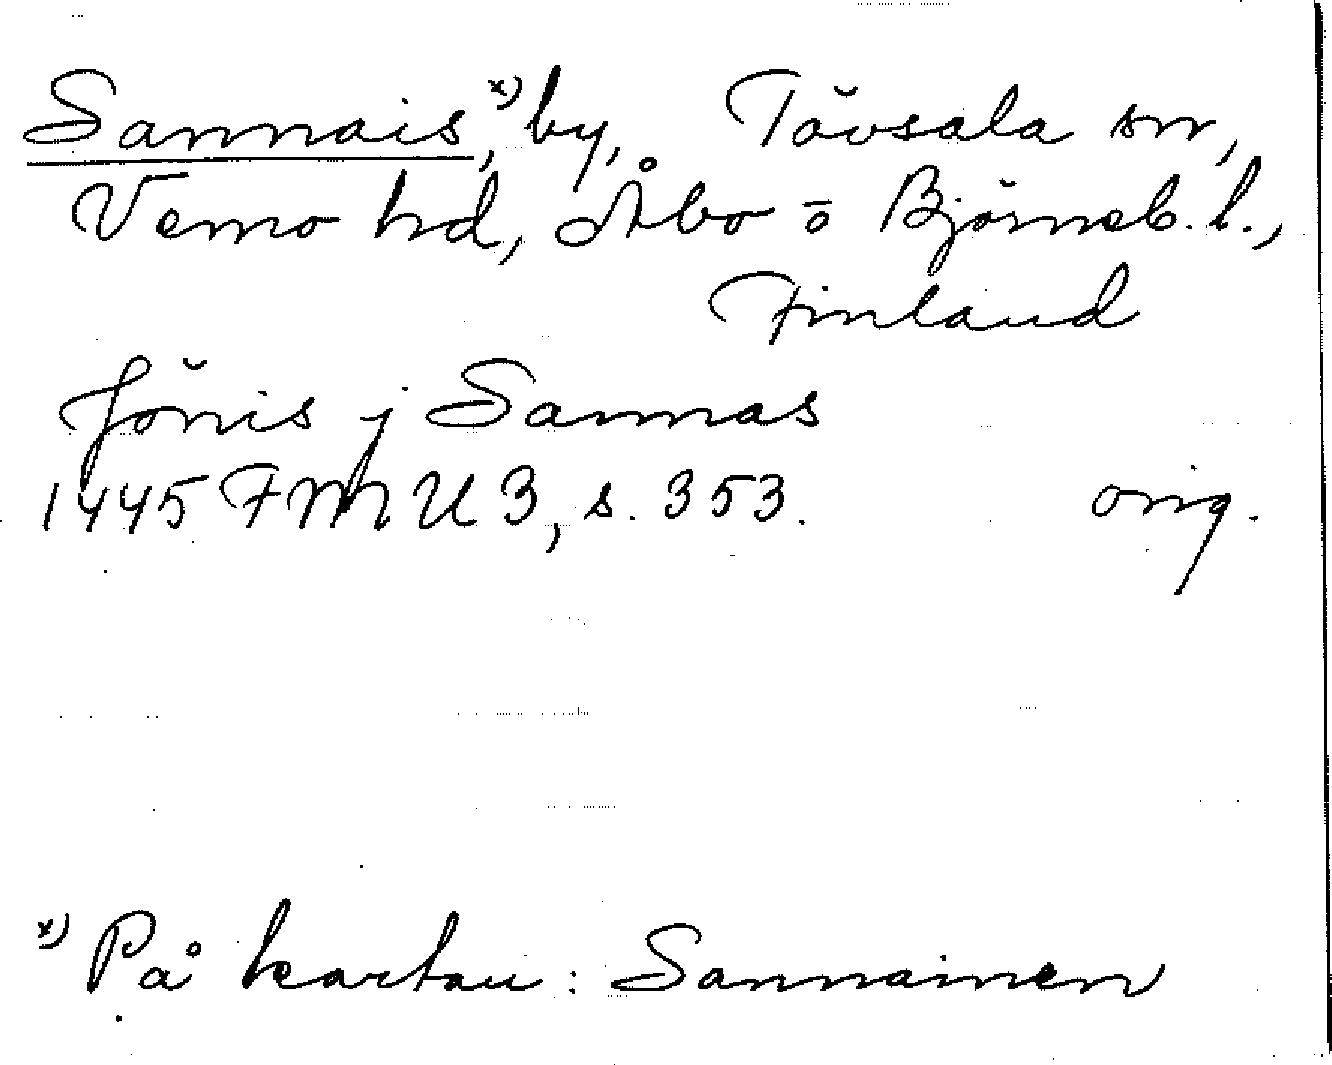 Sannais,ˣ⁾ by, Tövsala sn,
Vemo hd, Åbo o Björneb. l.,
Finland
Jönis j Sannas
1445 FMU 3, s. 353. orig.
ˣ⁾ På kartan: Sannainen